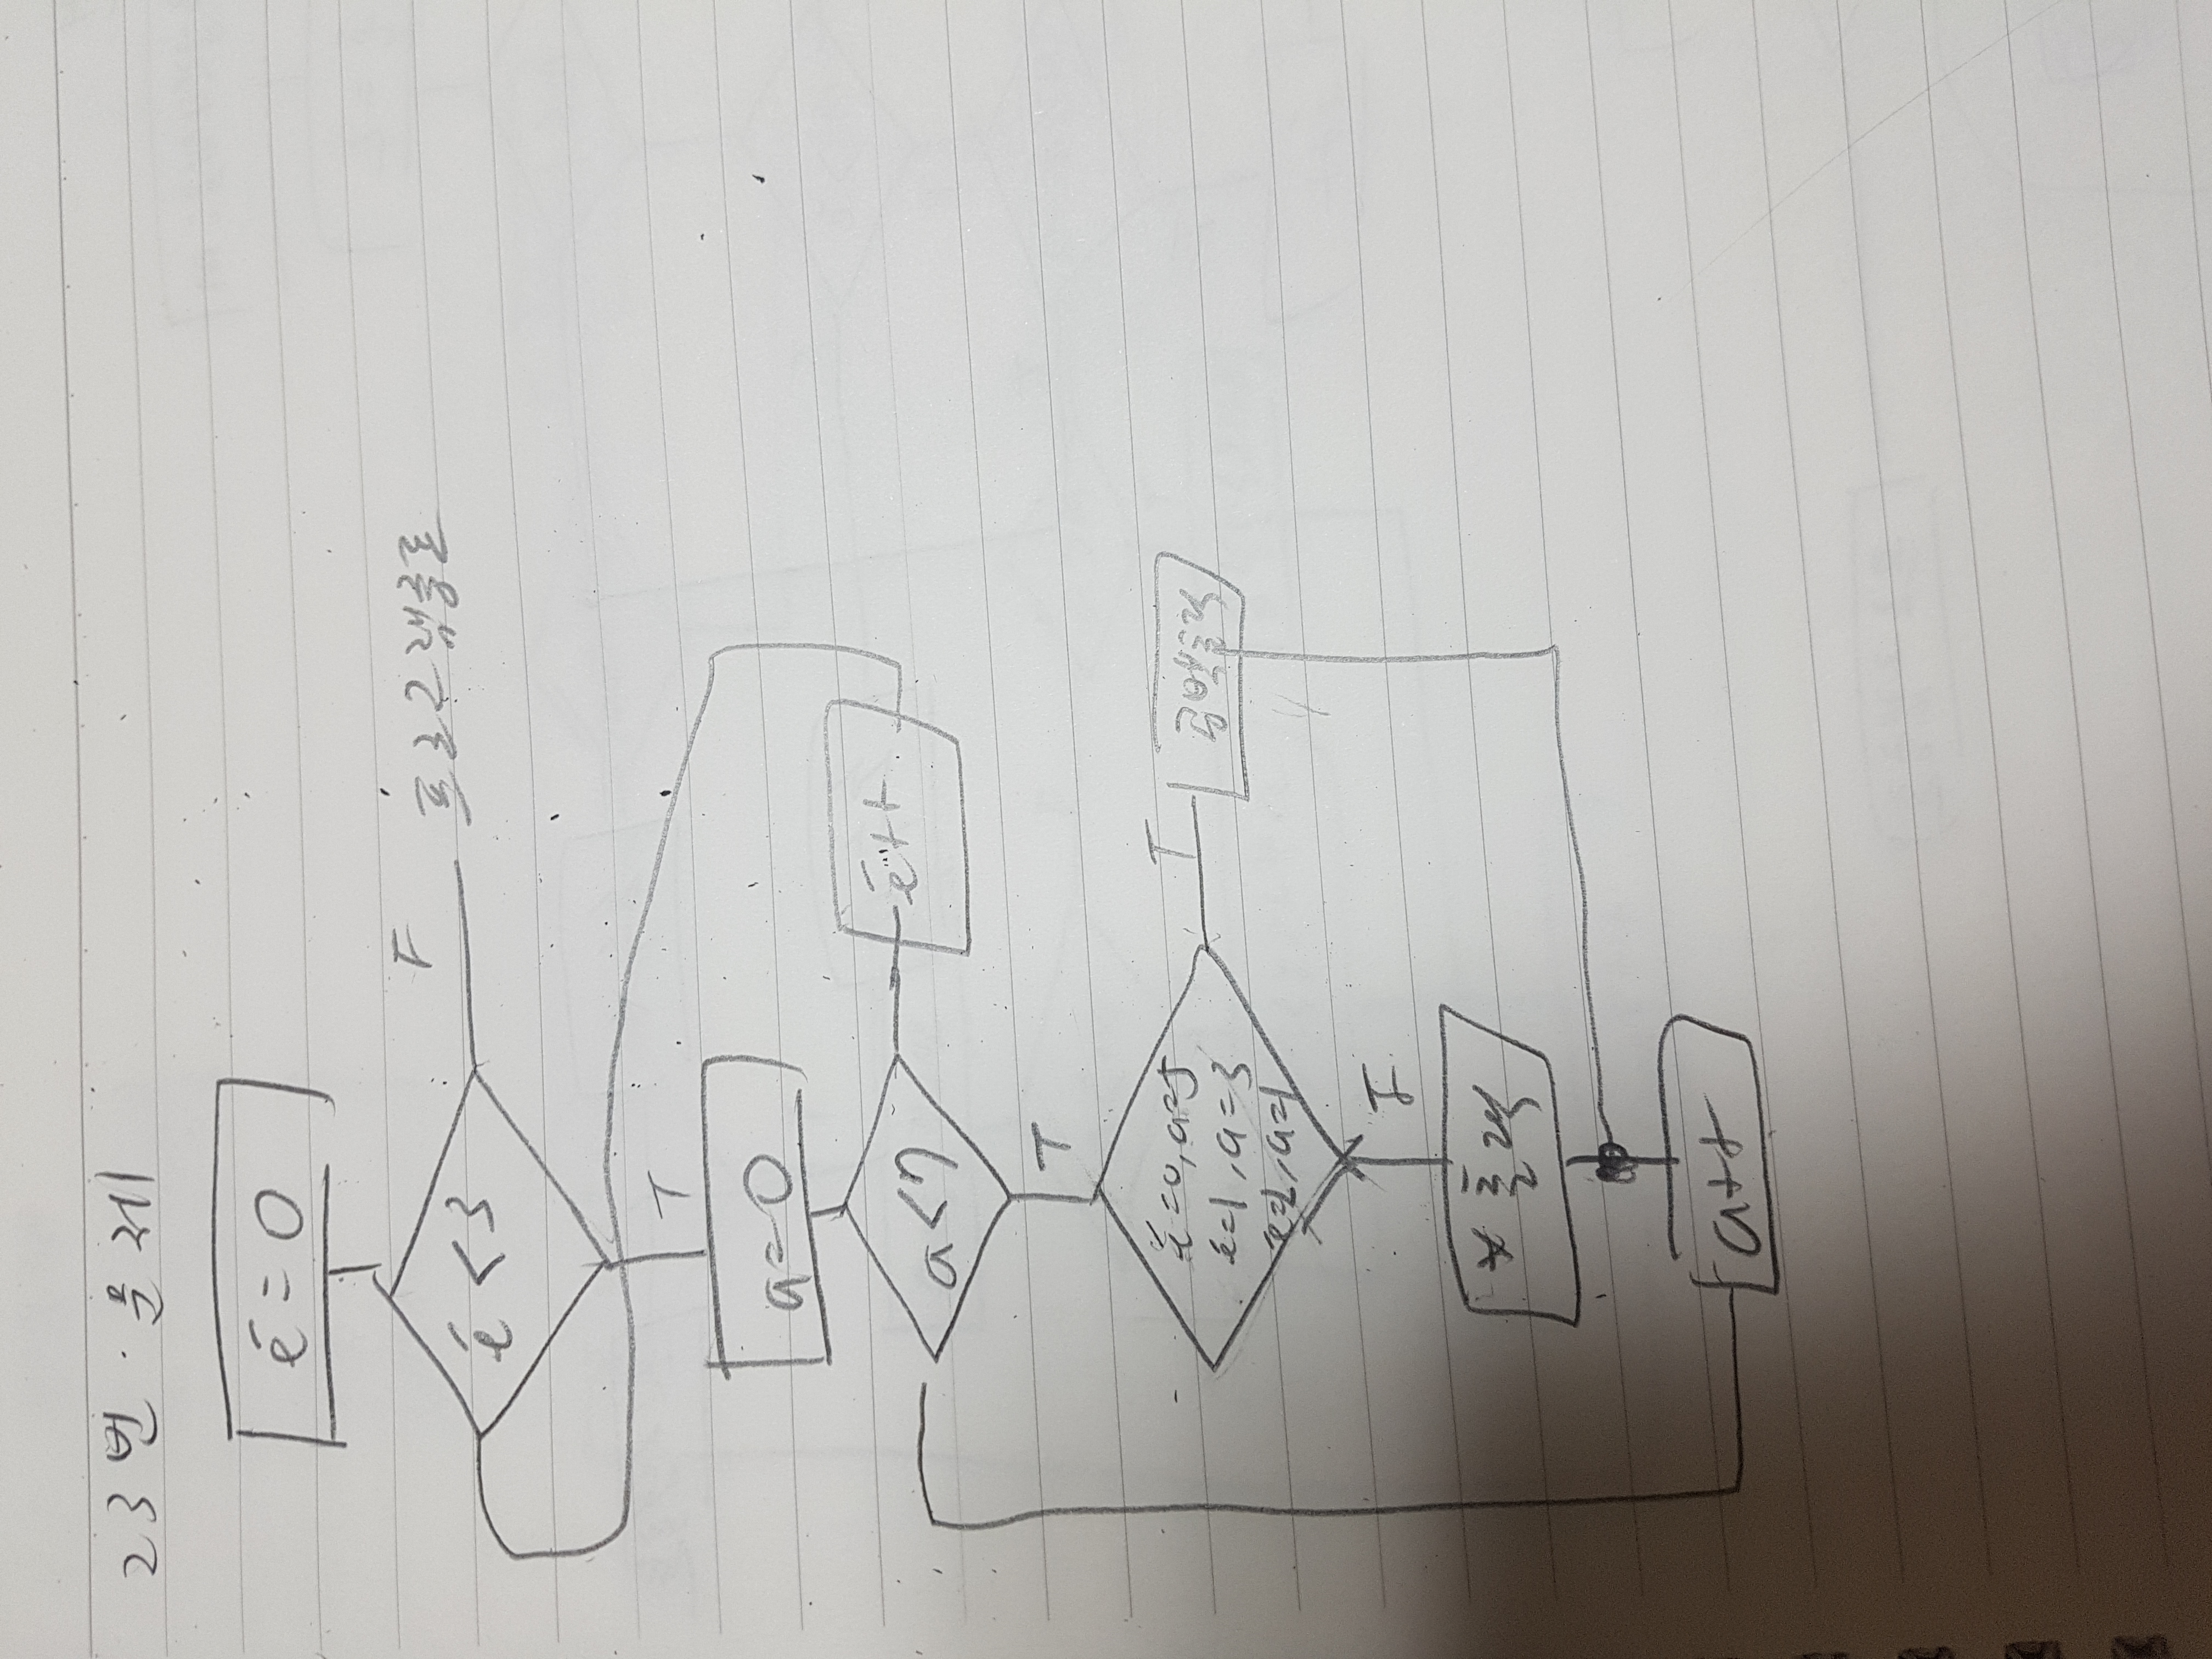 23번 · 문제
i = 0
i < 3
F
프로그램종료
T
a=0
a<7
i++
T
i=0, a=5
i=1, a=3
i=2, a=1
T
공백출력
F
* 출력
a++